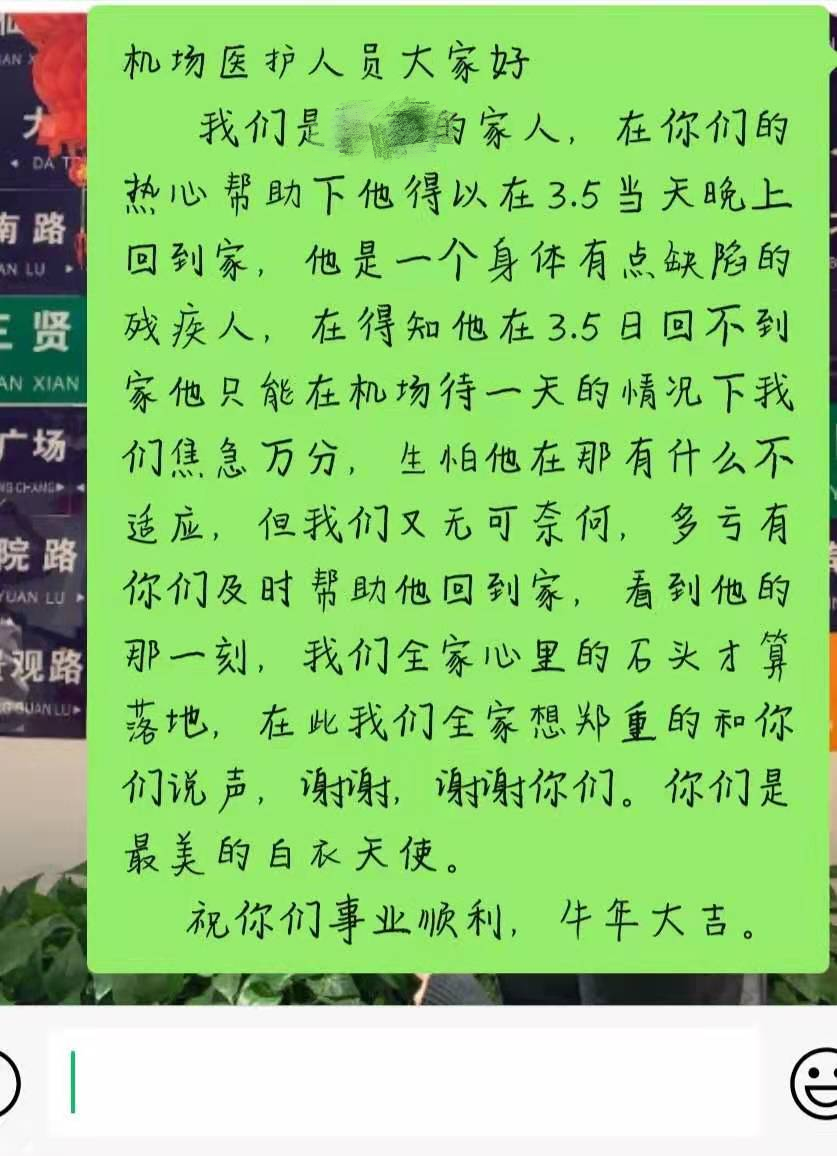 机场医护人员大家好
我们是 的家人，在你们的
热心帮助下他得以在3.5当天晚上
回到家，他是一个身体有点缺陷的
残疾人，在得知他在3.5日回不到
家他只能在机场待一天的情况下我
们焦急万分，生怕他在那有什么不
适应，但我们又无可奈何，多亏有
你们及时帮助他回到家，看到他的
那一刻，我们全家心里的石头才算
落地，在此我们全家想郑重的和你
们说声，谢谢，谢谢你们。你们是
最美的白衣天使。
祝你们事业顺利，牛年大吉。
DA T
南路
AN LU
贤
AN XIAN
广场
院路
YUAN LU
观路
GUAN LU